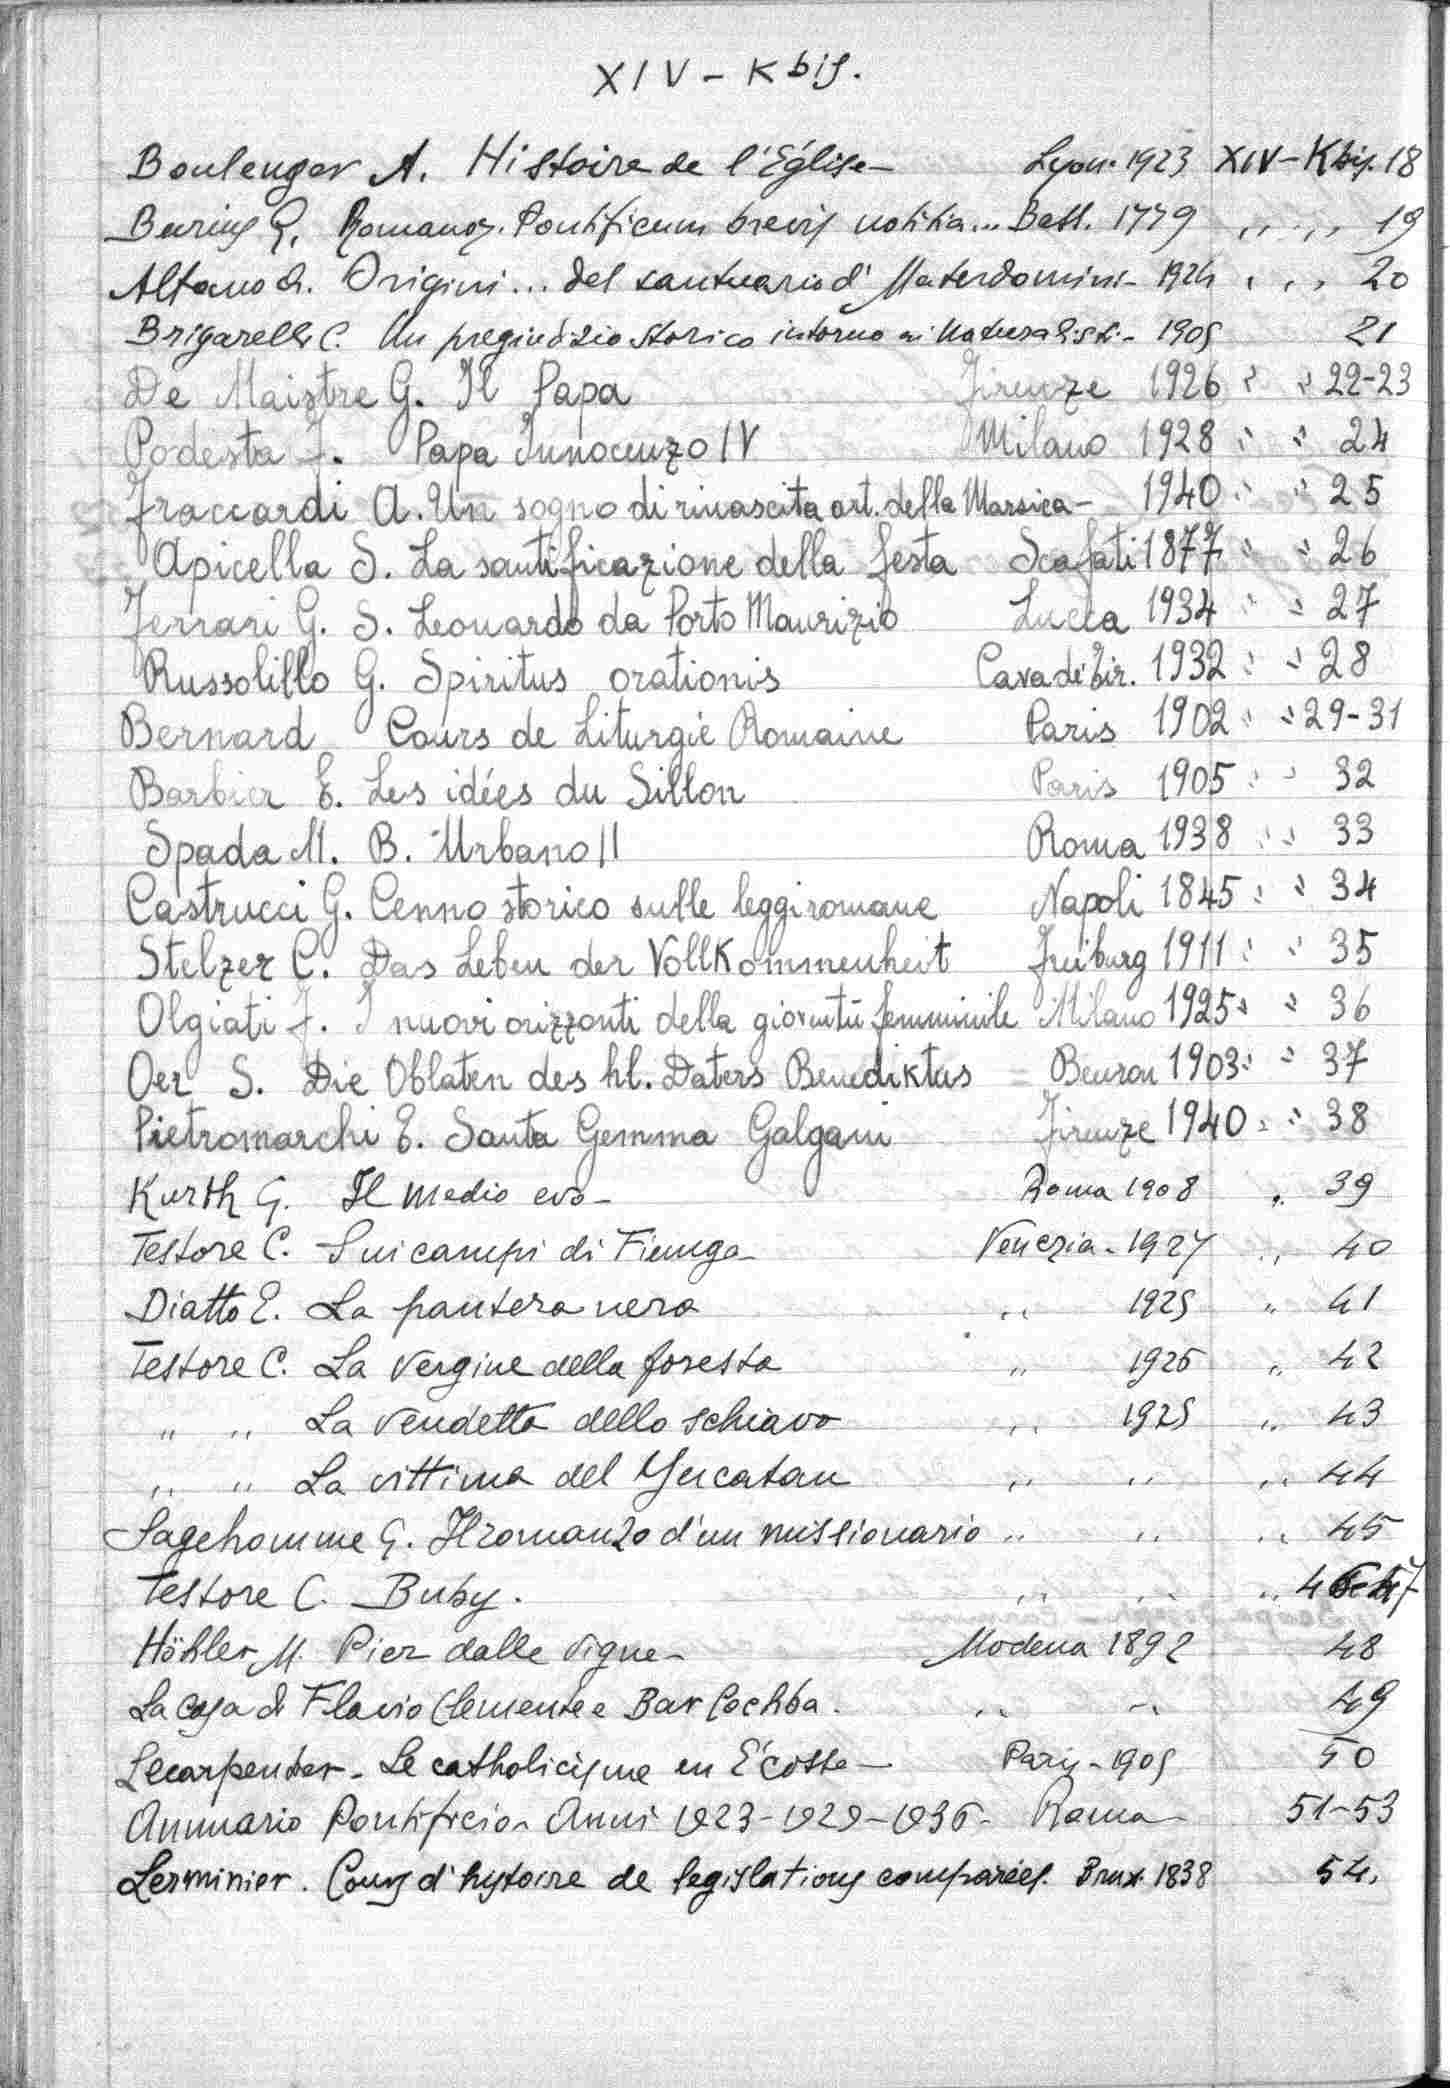 XIV - K bis.
Boulenger A. Histoire de l'Église - Lyon. 1923 XIV - K bis. 18
Burius G. Romanor. Pontificum brevis notitia... Bass. 1779 " " 19
Altano G. Origini... del santuario d' Materdomini - 1924 " " 20
Brigarelli C. Un pregiudizio storico intorno ai Naturalisti - 1905 21
De Maistre G. Il Papa Firenze 1926 " " 22-23
Podesta F. Papa Innocenzo IV Milano 1928 " " 24
Fraccardi A. Un sogno di rinascita art. della Marsica - 1940 " " 25
Apicella S. La santificazione della festa Scafati 1877 " " 26
Ferrari G. S. Leonardo da Porto Maurizio Lucca 1934 " " 27
Russolillo G. Spiritus orationis Cava dei Tir. 1932 " " 28
Bernard Cours de Liturgie Romaine Paris 1902 " " 29-31
Barbier E. Les idées du Sillon Paris 1905 " " 32
Spada M. B. Urbano II Roma 1938 " " 33
Castrucci G. Cenno storico sulle leggi romane Napoli 1845 " " 34
Stelzer C. Das Leben der Vollkommenheit Freiburg 1911 " " 35
Olgiati F. I nuovi orizzonti della gioventù femminile Milano 1925 " " 36
Oer S. Die Oblaten des hl. Daters Benediktus = Beuron 1903 " " 37
Pietromarchi E. Santa Gemma Galgani Firenze 1940 " " 38
Kurth G. Il medio evo - Roma 1908 " 39
Testore C. Sui campi di Fiemga - Venezia - 1927 " 40
Diatto E. La pantera nera " 1925 " 41
Testore C. La Vergine della foresta " 1926 " 42
" " La vendetta dello schiavo " 1925 " 43
" " La vittima del Yucatan " " " 44
Sagehomme G. Il romanzo d'un missionario " " " 45
Testore C. Buby. " " " 46-47
Höhler M. Pier dalle Vigne - Modena 1892 48
La casa di Flavio Clemente e Bar Cochba. " " 49
Lecarpenter - Le catholicisme en Écosse - Paris - 1905 50
Annuario Pontificio - Anni 1923 - 1929 - 1936 - Roma - 51-53
Lerminier. Cours d'hystoire de legislations comparées. Brux. 1838 54.